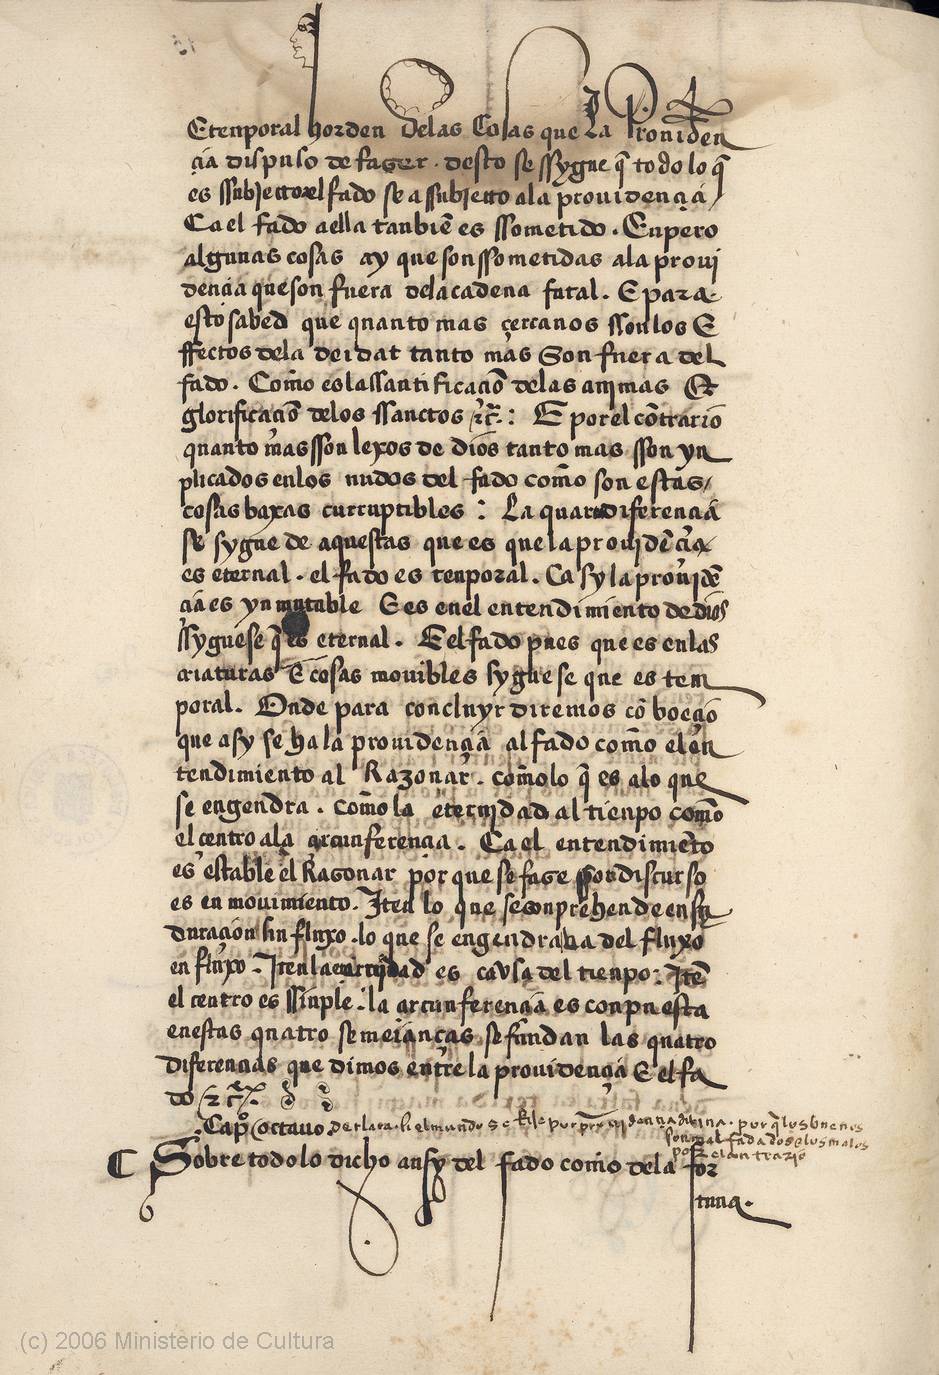 E tenporal horden delas Cosas que La Prouiden
çia dispuso de fazer . desto se ssygue q̃ todo lo q̃
es ssubjecto al fado sea ssubjecto ala prouidençia /
Ca el fado a ella tanbiẽ es ssometido . Enpero
algunas cosas ay que son ssometidas ala proui
dençia que son fuera dela cadena fatal . E para
esto sabed que quanto mas çercanos sson los E
ffectos dela deidat tanto mas Son fuera del
fado . Como es la ssantificaçiõ delas animas Et
glorificaçiõ delos ssanctos ⁊c̃ : E por el cõtrario
quanto mas sson lexos de dios tanto mas sson yn
plicados enlos nudos del fado como son estas /
cosas baxas curruptibles : La quarta diferençia
se sygue de aquestas que es que la prouidẽçia
es eternal . el fado es tenporal . Ca sy la prouidẽ
çia es ynmutable E es enel entendimiento de dios
ssyguese q̃ es eternal . E el fado pues que es enlas
criaturas E cosas mouibles syguese que es tem
poral . Onde para concluyr diremos cõ boeçio
que asy se ha la prouidençia al fado como el en
tendimiento al Razonar . como lo q̃ es alo que
se engendra . como la eternidad al tienpo como
el centro ala çircunferençia . Ca el entendimiẽto
es estable el Razonar por que se faze por discurso
es en mouimiento . Iten lo que se conprehende en su
duraçion sin fluxo . lo que se engendraua del fluxo
en fluxo . Iten la eternidad es cavsa del tienpo : Itẽ
el centro es ssinple . la çircunferençia es conpuesta
en estas quatro semejanças se fundan las quatro
diferençias que dimos entre la prouidençia E el fa
do ⁊c̃
. Capº octauo de clara . si el mundo se Rije por prouidençia diuina . por q̃ los buenos
son mal fadados e los malos
por el contrario
C Sobre todo lo dicho ansy del fado como dela for
tuna .
(c) 2006 Ministerio de Cultura